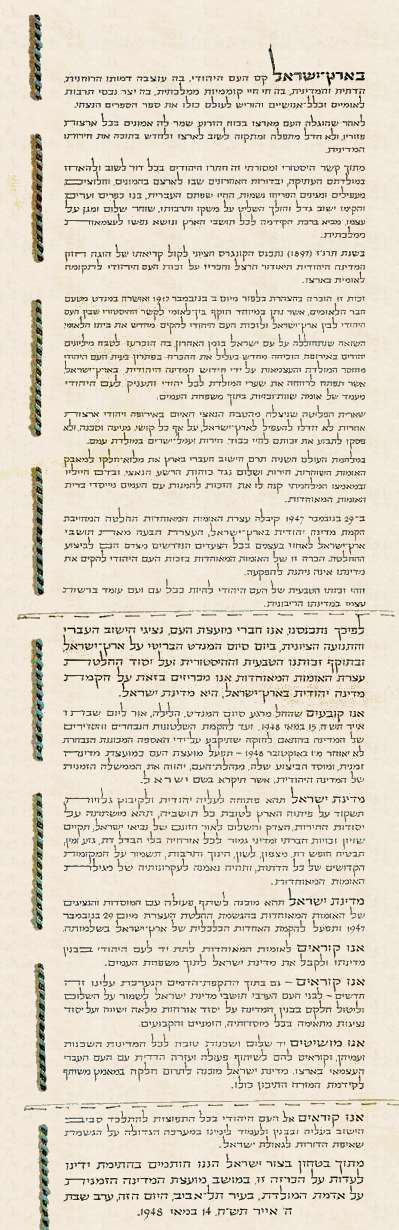 בארץ־ישראל קם העם היהודי, בה עוצבה דמותו הרוחנית,
הדתית והמדינית, בה חי חיי קוממיות ממלכתית, בה יצר נכסי תרבות
לאומיים וכלל־אנושיים והוריש לעולם כולו את ספר הספרים הנצחי.
לאחר שהוגלה העם מארצו בכוח הזרוע שמר לה אמונים בכל ארצות
פזוריו, ולא חדל מתפלה ומתקוה לשוב לארצו ולחדש בתוכה את חירותו
המדינית.
מתוך קשר היסטורי ומסורתי זה חתרו היהודים בכל דור לשוב ולהאחז
במולדתם העתיקה, ובדורות האחרונים שבו לארצם בהמונים, וחלוצים,
מעפילים ומגינים הפריחו נשמות, החיו שפתם העברית, בנו כפרים וערים,
והקימו ישוב גדל והולך השליט על משקו ותרבותו, שוחר שלום ומגן על
עצמו, מביא ברכת הקידמה לכל תושבי הארץ ונושא נפשו לעצמאות
ממלכתית.
בשנת תרנ״ז (1897) נתכנס הקונגרס הציוני לקול קריאתו של הוגה חזון
המדינה היהודית תיאודור הרצל והכריז על זכות העם היהודי לתקומה
לאומית בארצו.
זכות זו הוכרה בהצהרת בלפור מיום ב׳ בנובמבר 1917 ואושרה במנדט מטעם
חבר הלאומים, אשר נתן במיוחד תוקף בין־לאומי לקשר ההיסטורי שבין העם
היהודי לבין ארץ־ישראל ולזכות העם היהודי להקים מחדש את ביתו הלאומי.
השואה שנתחוללה על עם ישראל בזמן האחרון, בה הוכרעו לטבח מיליונים
יהודים באירופה, הוכיחה מחדש בעליל את ההכרח בפתרון בעית העם היהודי
מחוסר המולדת והעצמאות על־ידי חידוש המדינה היהודית בארץ־ישראל,
אשר תפתח לרווחה את שערי המולדת לכל יהודי ותעניק לעם היהודי
מעמד של אומה שוות־זכויות בתוך משפחת העמים.
שארית הפליטה שניצלה מהטבח הנאצי האיום באירופה ויהודי ארצות
אחרות לא חדלו להעפיל לארץ־ישראל, על אף כל קושי, מניעה וסכנה, ולא
פסקו לתבוע את זכותם לחיי כבוד, חירות ועמל־ישרים במולדת עמם.
במלחמת העולם השניה תרם הישוב העברי בארץ את מלוא־חלקו למאבק
האומות השוחרות חירות ושלום נגד כוחות הרשע הנאצי, ובדם חייליו
ובמאמצו המלחמתי קנה לו את הזכות להמנות עם העמים מייסדי ברית
האומות המאוחדות.
ב־29 בנובמבר 1947 קיבלה עצרת האומות המאוחדות החלטה המחייבת
הקמת מדינה יהודית בארץ־ישראל, העצרת תבעה מאת תושבי
ארץ־ישראל לאחוז בעצמם בכל הצעדים הנדרשים מצדם הם לביצוע
ההחלטה. הכרה זו של האומות המאוחדות בזכות העם היהודי להקים את
מדינתו אינה ניתנת להפקעה.
זוהי זכותו הטבעית של העם היהודי להיות ככל עם ועם עומד ברשות
עצמו במדינתו הריבונית.
לפיכך נתכנסנו, אנו חברי מועצת העם, נציגי הישוב העברי
והתנועה הציונית, ביום סיום המנדט הבריטי על ארץ־ישראל,
ובתוקף זכותנו הטבעית וההיסטורית ועל יסוד החלטת
עצרת האומות המאוחדות אנו מכריזים בזאת על הקמת
מדינה יהודית בארץ־ישראל, היא מדינת ישראל.
אנו קובעים שהחל מרגע סיום המנדט, הלילה, אור ליום שבת ו׳
אייר תש״ח, 15 במאי 1948, ועד להקמת השלטונות הנבחרים והסדירים
של המדינה בהתאם לחוקה שתיקבע על־ידי האספה המכוננת הנבחרת
לא יאוחר מ־1 באוקטובר 1948 – תפעל מועצת העם כמועצת מדינה
זמנית, ומוסד הביצוע שלה, מנהלת־העם, יהווה את הממשלה הזמנית
של המדינה היהודית, אשר תיקרא בשם ישראל.
מדינת ישראל תהא פתוחה לעליה יהודית ולקיבוץ גלויות,
תשקוד על פיתוח הארץ לטובת כל תושביה, תהא מושתתה על
יסודות החירות, הצדק והשלום לאור חזונם של נביאי ישראל, תקיים
שויון זכויות חברתי ומדיני גמור לכל אזרחיה בלי הבדל דת, גזע ומין,
תבטיח חופש דת, מצפון, לשון, חינוך ותרבות, תשמור על המקומות
הקדושים של כל הדתות, ותהיה נאמנה לעקרונותיה של מגילת
האומות המאוחדות.
מדינת ישראל תהא מוכנה לשתף פעולה עם המוסדות והנציגים
של האומות המאוחדות בהגשמת החלטת העצרת מיום 29 בנובמבר
1947 ותפעל להקמת האחדות הכלכלית של ארץ־ישראל בשלמותה.
אנו קוראים לאומות המאוחדות לתת יד לעם היהודי בבנין
מדינתו ולקבל את מדינת ישראל לתוך משפחת העמים.
אנו קוראים – גם בתוך התקפת־הדמים הנערכת עלינו זה
חדשים – לבני העם הערבי תושבי מדינת ישראל לשמור על השלום
וליטול חלקם בבנין המדינה על יסוד אזרחות מלאה ושווה ועל יסוד
נציגות מתאימה בכל מוסדותיה, הזמניים והקבועים.
אנו מושיטים יד שלום ושכנות טובה לכל המדינות השכנות
ועמיהן, וקוראים להם לשיתוף פעולה ועזרה הדדית עם העם העברי
העצמאי בארצו. מדינת ישראל מוכנה לתרום חלקה במאמץ משותף
לקידמת המזרח התיכון כולו.
אנו קוראים אל העם היהודי בכל התפוצות להתלכד סביב
הישוב בעליה ובבנין ולעמוד לימינו במערכה הגדולה על הגשמת
שאיפת הדורות לגאולת ישראל.
מתוך בטחון בצור ישראל הננו חותמים בחתימת ידינו
לעדות על הכרזה זו, במושב מועצת המדינה הזמנית,
על אדמת המולדת, בעיר תל־אביב, היום הזה, ערב שבת,
ה׳ אייר תש״ח, 14 במאי 1948.